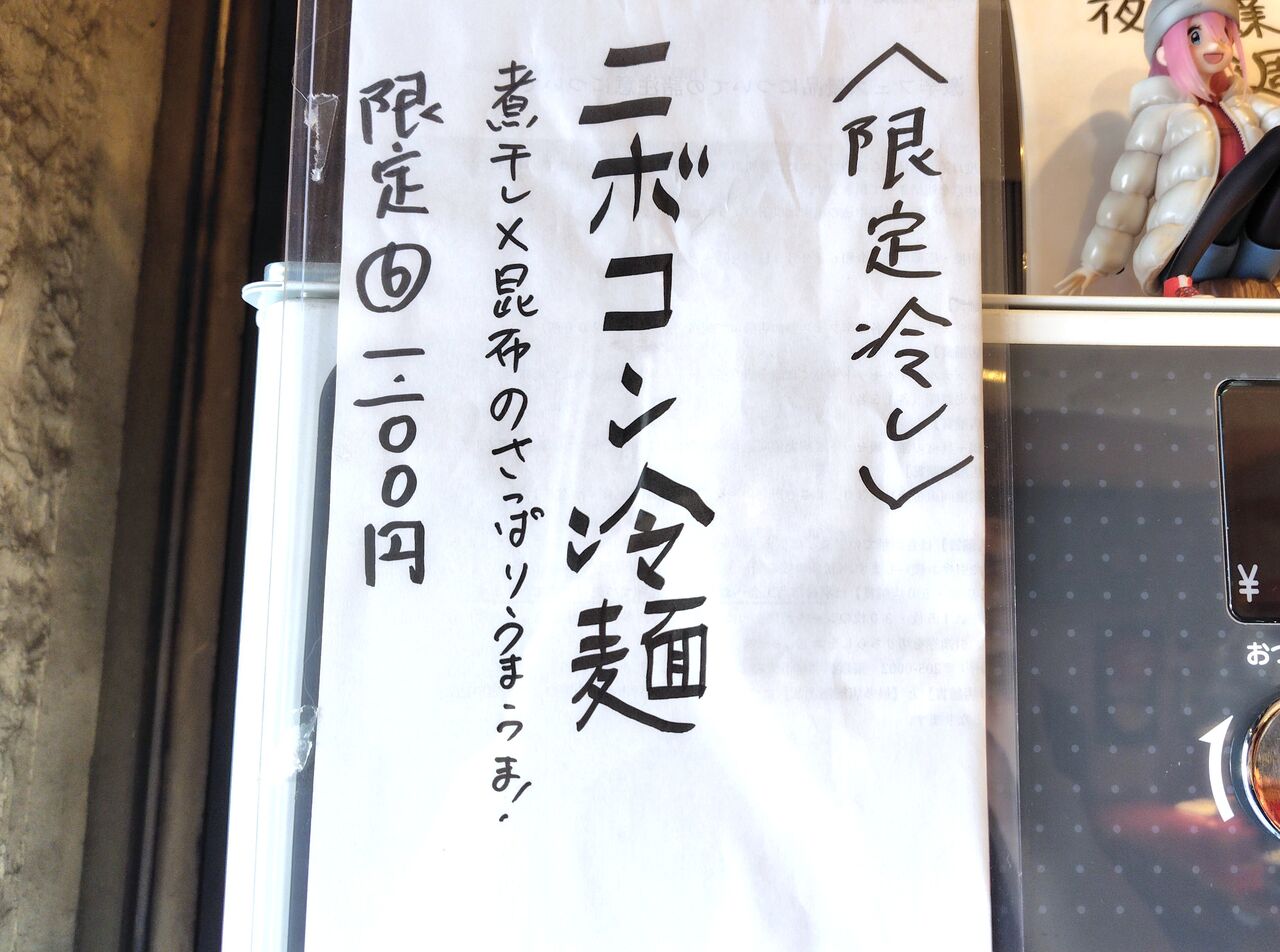 〈限定冷し〉
ニボコン冷麺
煮干し×昆布のさっぱりうまうま!
限定⑥一二〇〇円
¥
おつ